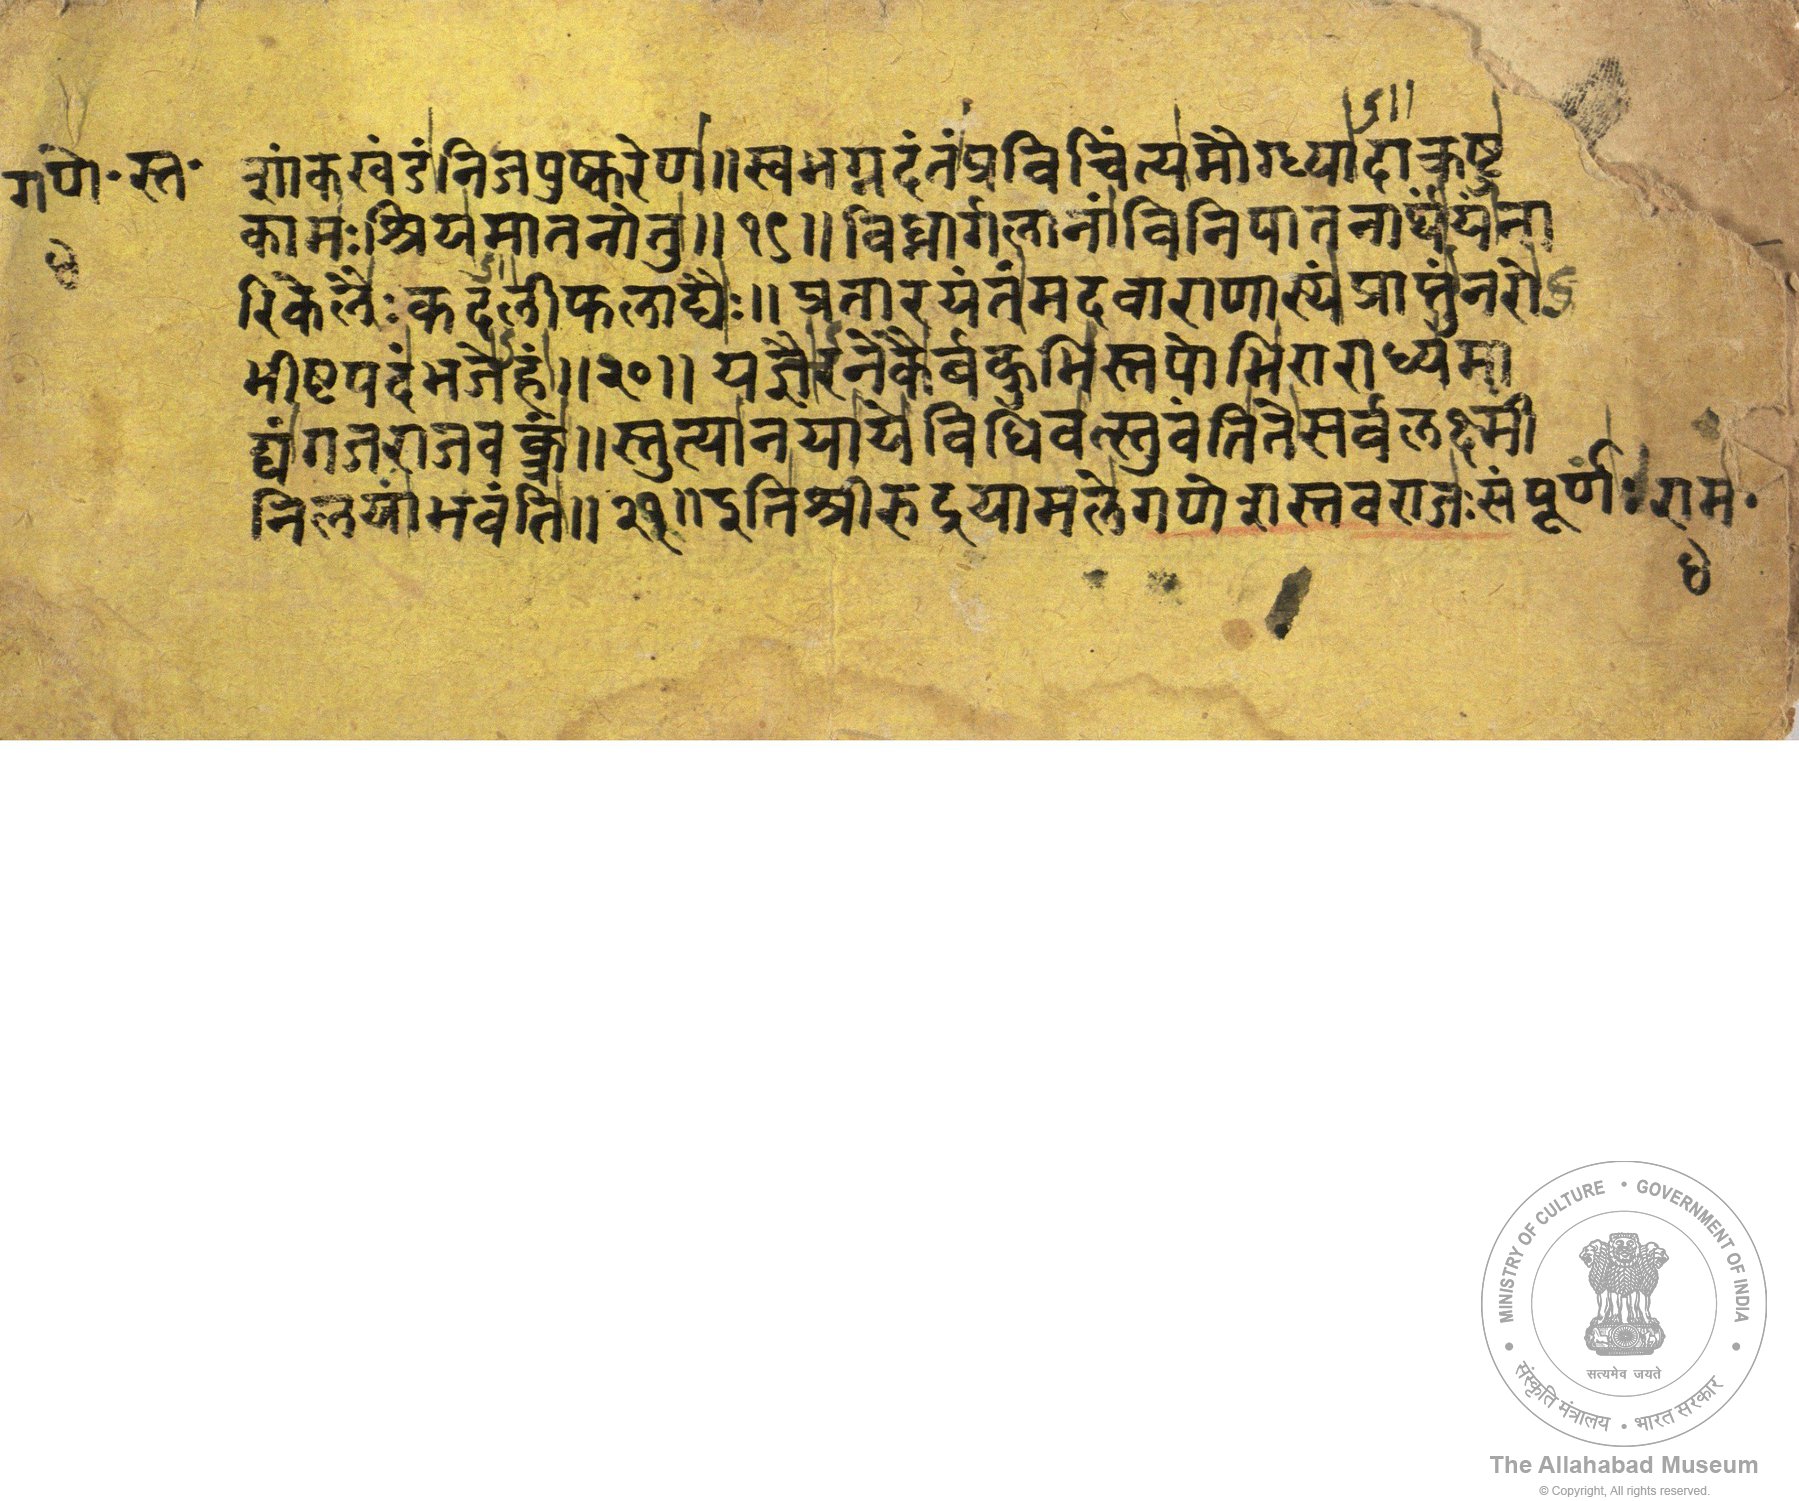 गणे॰ स्त॰
४
शांकखंडंनिजपुष्करेण॥स्वभग्नदंतंप्रविचिंत्यमौग्ध्यादाक्रष्टु
कामःश्रियमातनोतु॥१९॥विघ्नार्गलानांविनिपातनार्थंयंना
रिकेलैःकदलीफलाद्यैः॥प्रतारयंतंमदवारणास्यंप्राप्तुंनरोऽ
भीष्टपदंभजेहं॥२०॥यज्ञैरनेकैर्बहुभिस्तपोभिराराध्यमा
द्यंगजराजवक्त्रं॥स्तुत्यानयायेविधिवत्स्तुवंतितेसर्वलक्ष्मी
निलयाभवंति॥२१॥इतिश्रीरुद्रयामलेगणेशस्तवराजःसंपूर्णः
राम॰
४
MINISTRY OF CULTURE • GOVERNMENT OF INDIA
सत्यमेव जयते
संस्कृति मंत्रालय • भारत सरकार
The Allahabad Museum
© Copyright, All rights reserved.